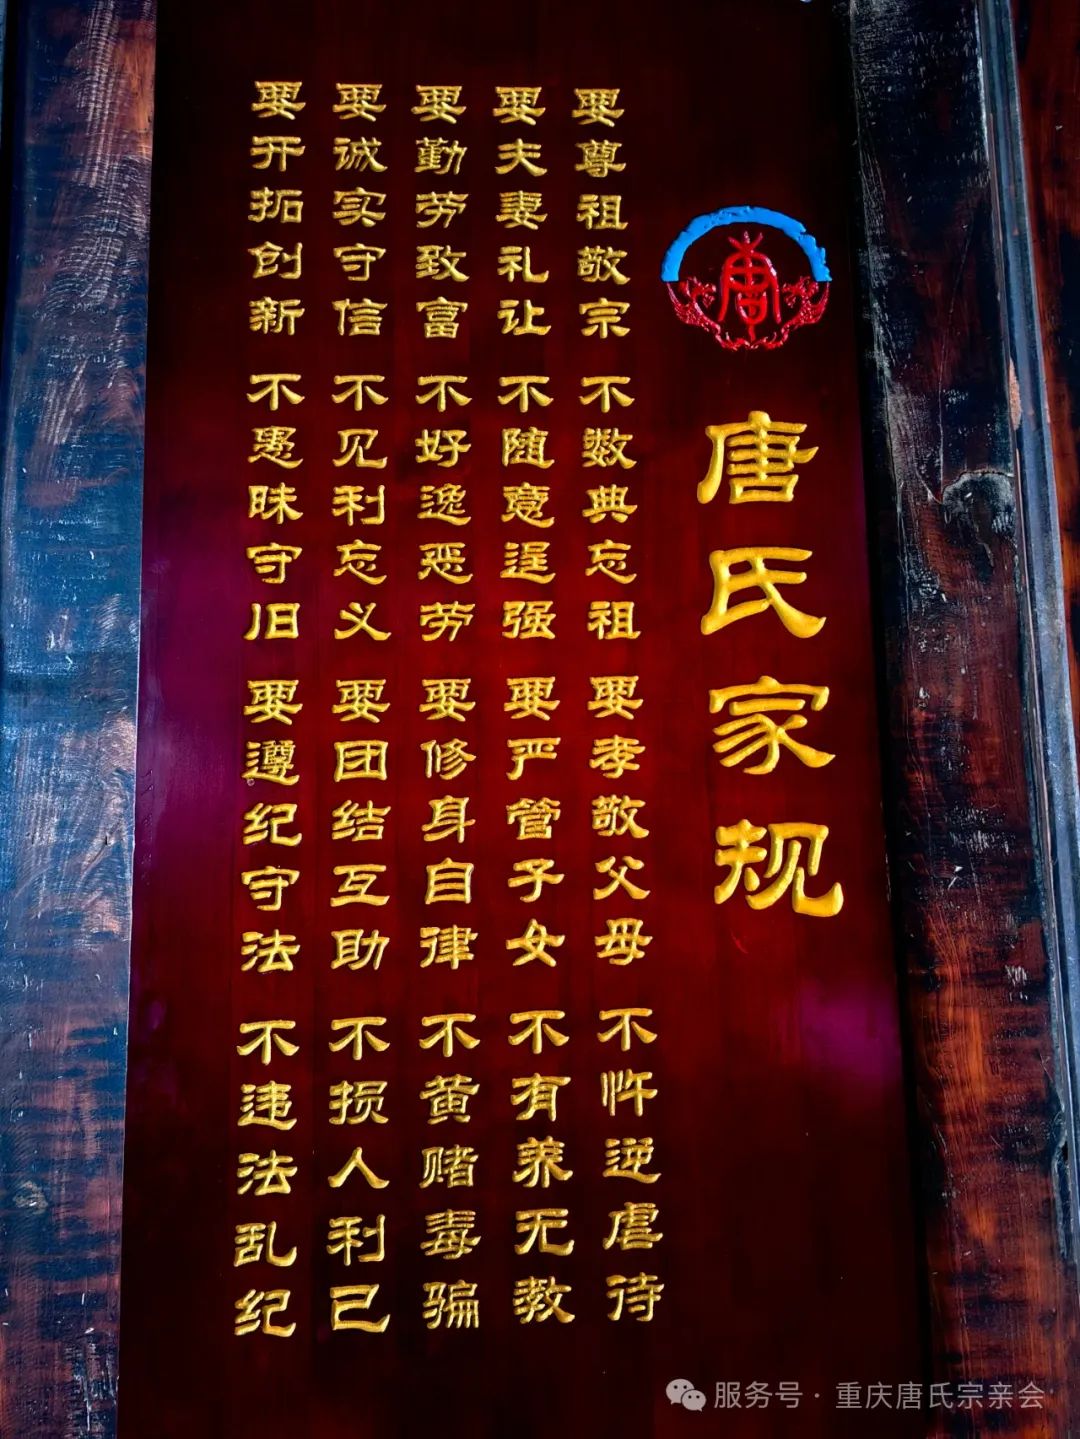 唐
唐氏家规
要尊祖敬宗 不数典忘祖 要孝敬父母 不忤逆虐待
要夫妻礼让 不随意逞强 要严管子女 不有养无教
要勤劳致富 不好逸恶劳 要修身自律 不黄赌毒骗
要诚实守信 不见利忘义 要团结互助 不损人利己
要开拓创新 不愚昧守旧 要遵纪守法 不违法乱纪
服务号·重庆唐氏宗亲会